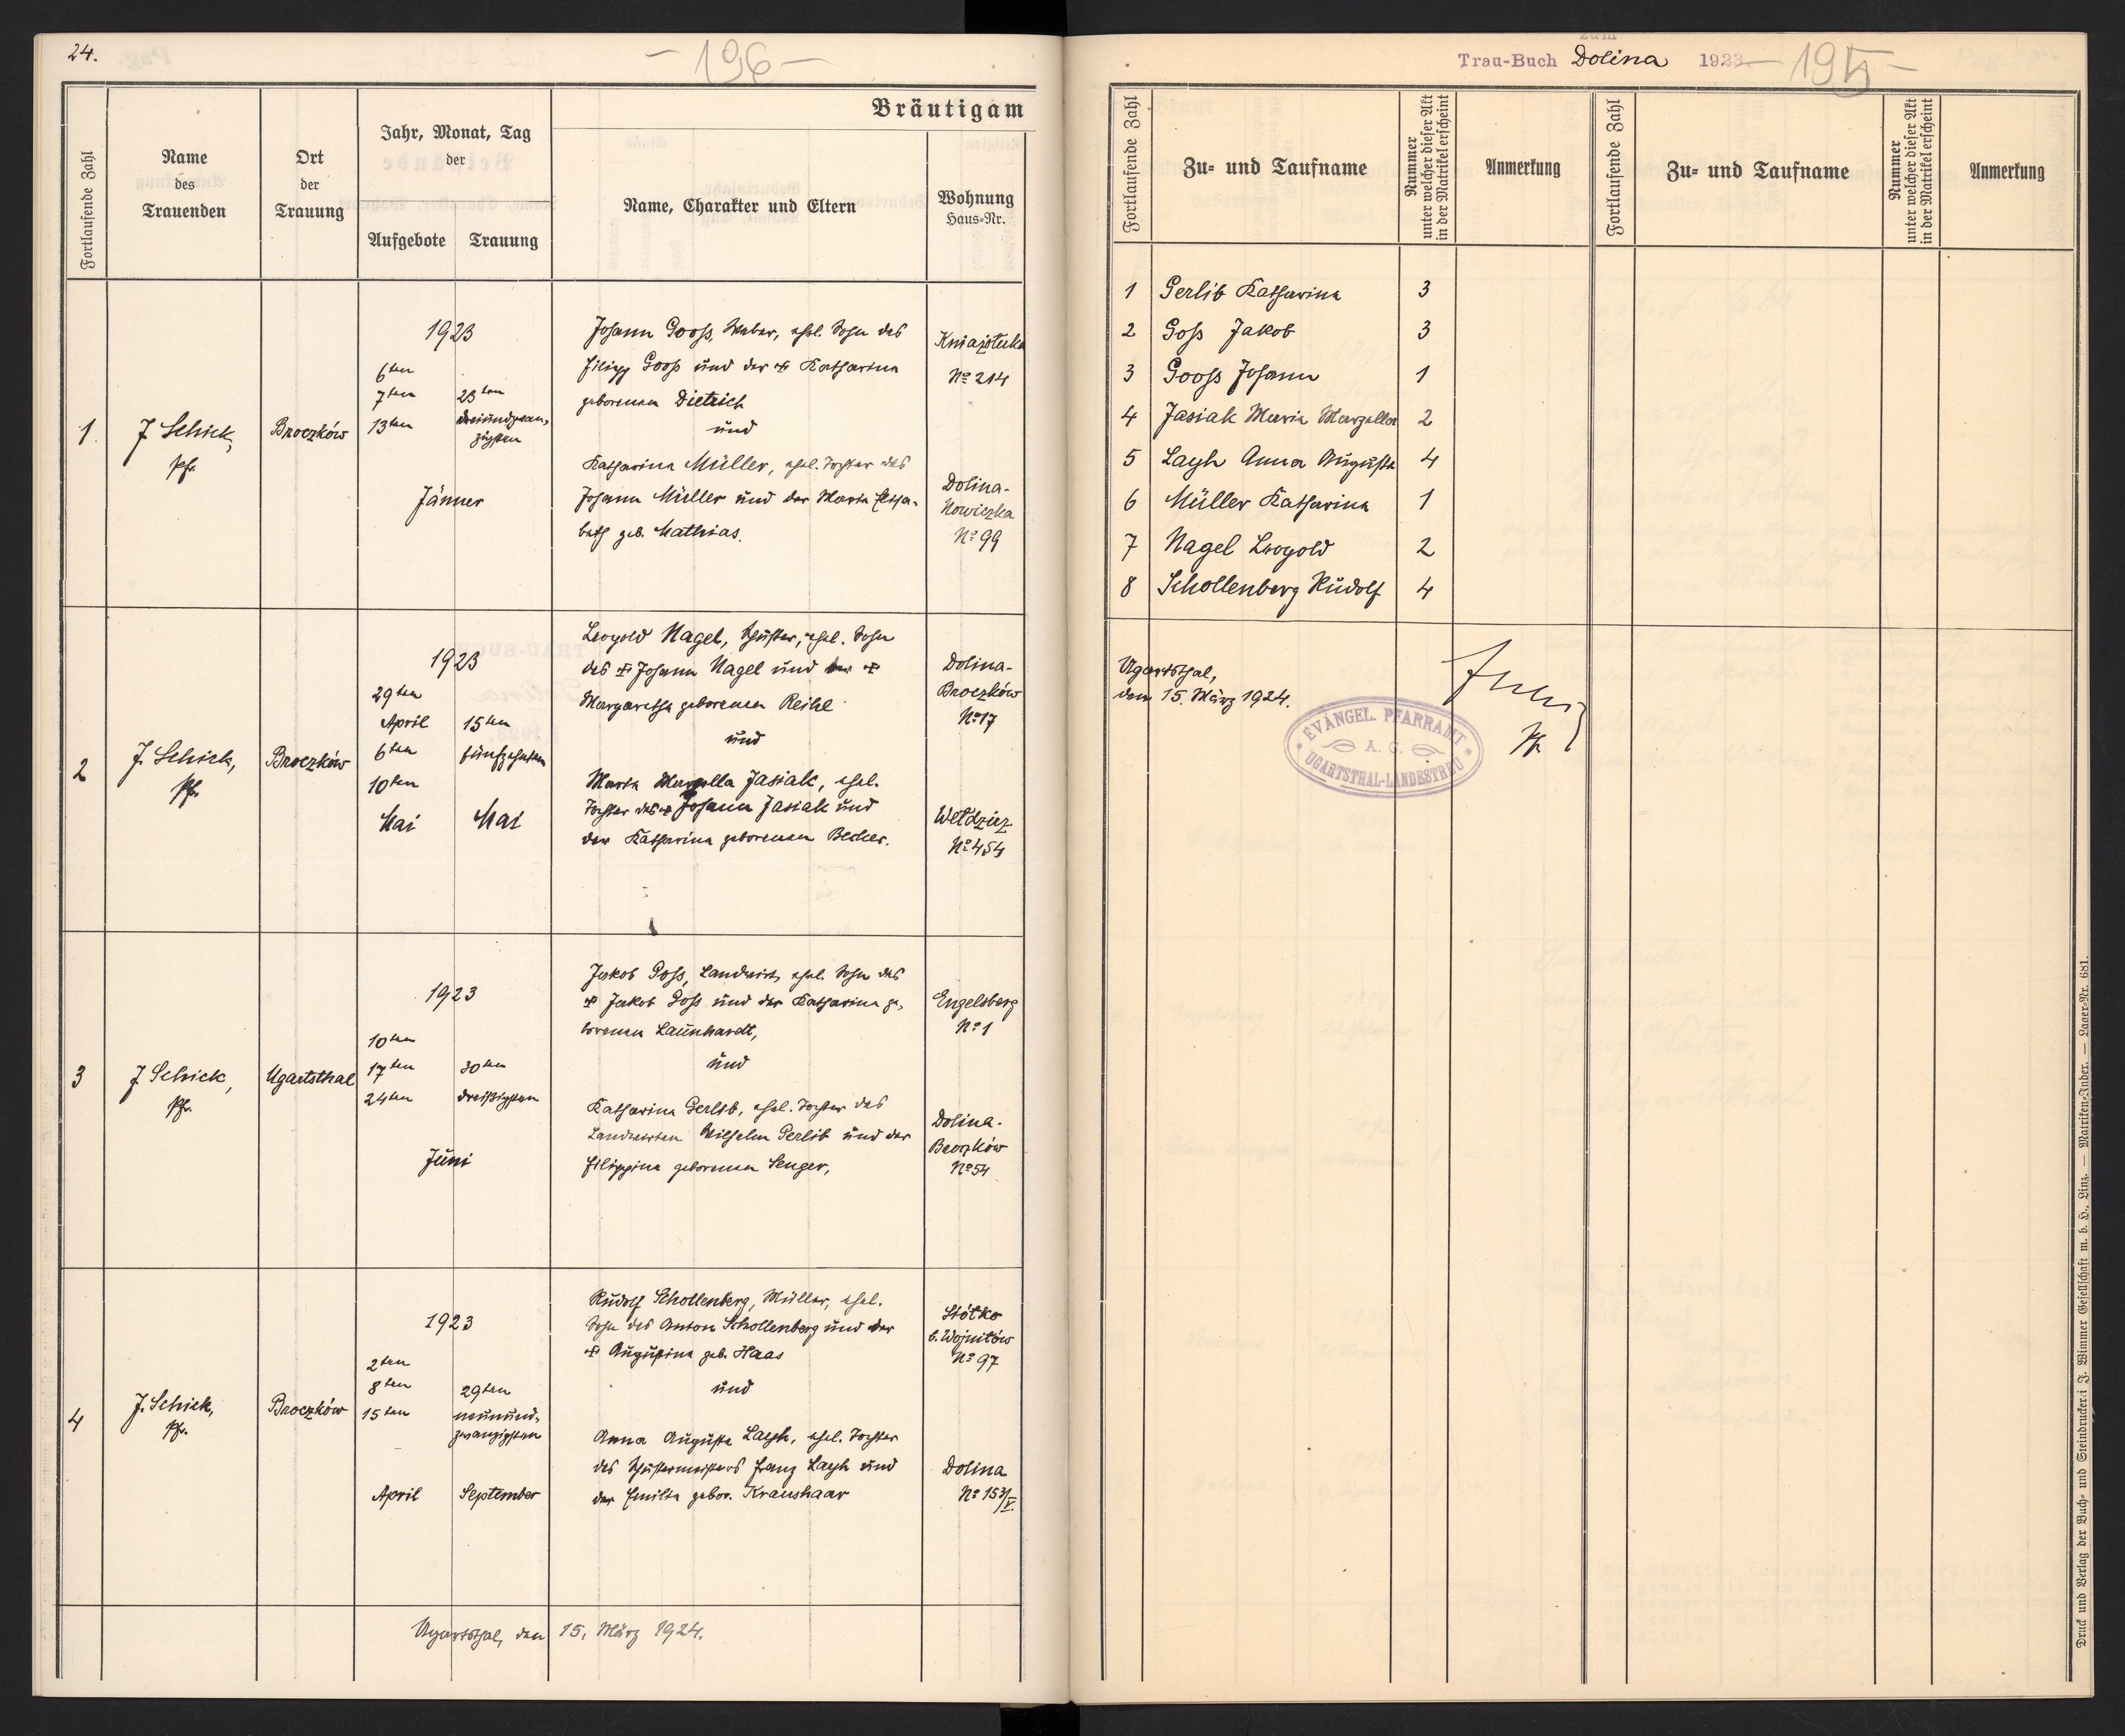 24.
- 196 -
Bräutigam
Fortlaufende Zahl
Name
des
Trauenden
Ort
der
Trauung
Jahr, Monat, Tag
der
Aufgebote
Trauung
Name, Charakter und Eltern
Wohnung
Haus-Nr.
1.
J. Schick,
Pfr.
Broczków
1923
6ten
7ten
13ten
23ten
dreiundzwan-
zigsten
Jänner
Johann Gooss, Weber, ehel. Sohn des
Filipp Gooss und der Katharina
geborenen Dietrich
und
Katharina Müller, ehel. Tochter des
Johann Müller und der Maria Elisa-
beth geb. Mathias.
Kniaźołuka
No 214
Dolina-
Nowiczka
No 99
2
J. Schick,
Pfr.
Broczków
1923
29ten
April
6ten
10ten
Mai
15ten
fünfzehnten
Mai
Leopold Nagel, Schuster, ehel. Sohn
des Johann Nagel und der
Margaretha geborenen Reihl
und
Maria Marzella Jasiak, ehel.
Tochter des Johann Jasiak und
der Katharina geborenen Becher.
Dolina-
Broczków
No 17
Wełdzirz
No 454
3
J. Schick,
Pfr.
Ugartsthal
1923
10ten
17ten
24ten
30ten
dreißigsten
Juni
Jakob Goss, Landwirt, ehel. Sohn des
Jakob Goss und der Katharina ge-
borenen Launhardt,
und
Katharina Gerlib, ehel. Tochter des
Landwirten Wilhelm Gerlib und der
Filippina geborenen Senger,
Engelsberg
No 1
Dolina-
Broczków
No 54
4
J. Schick,
Pfr.
Broczków
1923
2ten
8ten
15ten
April
29ten
neunund-
zwanzigsten
September
Rudolf Schollenberg, Müller, ehel.
Sohn des Anton Schollenberg und der
Augustina geb. Haas
und
Anna Augusta Layh, ehel. Tochter
des Schustermeisters Franz Layh und
der Emilia gebor. Kraushaar
b. Wojniłów
No 97
Dolina
No 153/V.
Ugartsthal, den 15. März 1924.
zum
Trau-Buch Dolina 1923
- 195 -
Fortlaufende Zahl
Zu- und Taufname
Nummer
unter welcher dieser Akt
in der Matrikel erscheint
Anmerkung
Fortlaufende Zahl
Zu- und Taufname
Nummer
unter welcher dieser Akt
in der Matrikel erscheint
Anmerkung
1 Gerlib Katharina 3
2 Goss Jakob 3
3 Gooss Johann 1
4 Jasiak Maria Marzella 2
5 Layh Anna Augusta 4
6 Müller Katharina 1
7 Nagel Leopold 2
8 Schollenberg Rudolf 4
Ugartsthal,
den 15. März 1924.
Pfr.
EVANGEL. PFARRAMT
A. C.
UGARTSTHAL-LANDESTREU
Druck und Verlag der Buch- und Steindruckerei J. Wimmer Gesellschaft m. b. H., Linz. — Matriken-Index. — Lager-Nr. 681.